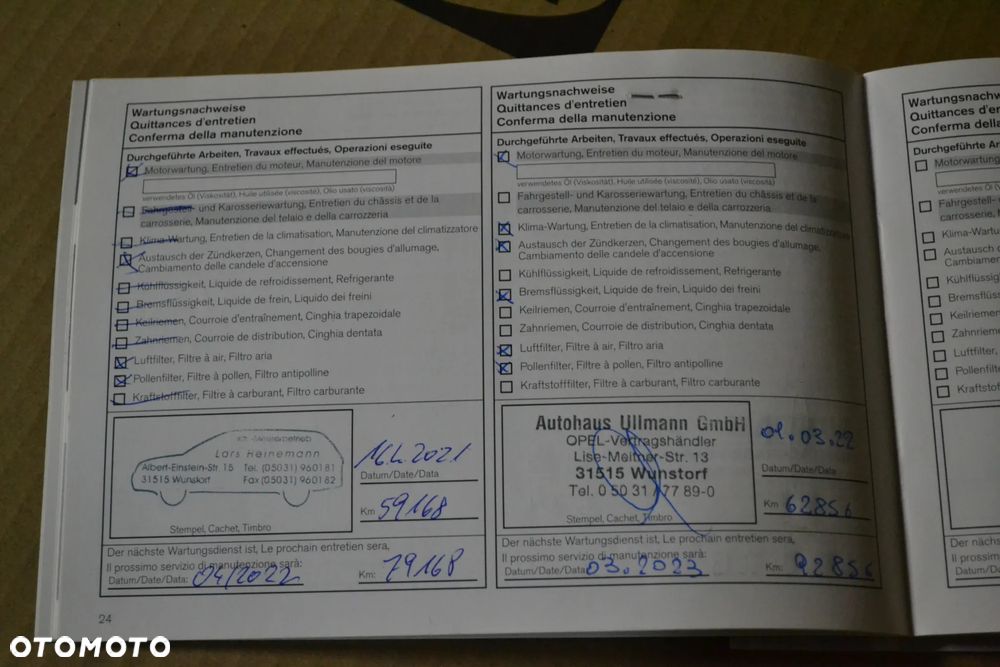 Wartungsnachweise
Quittances d'entretien
Conferma della manutenzione
Durchgeführte Arbeiten, Travaux effectués, Operazioni eseguite
Motorwartung, Entretien du moteur, Manutenzione del motore
verwendetes Öl (Viskosität), Huile utilisée (viscosité), Olio usato (viscosità)
Fahrgestell- und Karosseriewartung, Entretien du châssis et de la
carrosserie, Manutenzione del telaio e della carrozzeria
Klima-Wartung, Entretien de la climatisation, Manutenzione del climatizzatore
Austausch der Zündkerzen, Changement des bougies d'allumage,
Cambiamento delle candele d'accensione
Kühlflüssigkeit, Liquide de refroidissement, Refrigerante
Bremsflüssigkeit, Liquide de frein, Liquido dei freini
Keilriemen, Courroie d'entraînement, Cinghia trapezoidale
Zahnriemen, Courroie de distribution, Cinghia dentata
Luftfilter, Filtre à air, Filtro aria
Pollenfilter, Filtre à pollen, Filtro antipolline
Kraftstofffilter, Filtre à carburant, Filtro carburante
Lars Heinemann
Albert-Einstein-Str. 15 Tel. (05031) 960181
31515 Wunstorf Fax (05031) 960182
Stempel, Cachet, Timbro
Datum/Date/Data
Km 59168
Der nächste Wartungsdienst ist, Le prochain entretien sera,
Il prossimo servizio di manutenzione sarà:
Datum/Date/Data: 04/2022 Km: 79168
24
Wartungsnachweise
Quittances d'entretien
Conferma della manutenzione
Durchgeführte Arbeiten, Travaux effectués, Operazioni eseguite
Motorwartung, Entretien du moteur, Manutenzione del motore
verwendetes Öl (Viskosität), Huile utilisée (viscosité), Olio usato (viscosità)
Fahrgestell- und Karosseriewartung, Entretien du châssis et de la
carrosserie, Manutenzione del telaio e della carrozzeria
Klima-Wartung, Entretien de la climatisation, Manutenzione del climatizzatore
Austausch der Zündkerzen, Changement des bougies d'allumage,
Cambiamento delle candele d'accensione
Kühlflüssigkeit, Liquide de refroidissement, Refrigerante
Bremsflüssigkeit, Liquide de frein, Liquido dei freini
Keilriemen, Courroie d'entraînement, Cinghia trapezoidale
Zahnriemen, Courroie de distribution, Cinghia dentata
Luftfilter, Filtre à air, Filtro aria
Pollenfilter, Filtre à pollen, Filtro antipolline
Kraftstofffilter, Filtre à carburant, Filtro carburante
Autohaus Ullmann GmbH
OPEL-Vertragshändler
Lise-Meitner-Str. 13
31515 Wunstorf
Tel. 0 50 31 / 77 89-0
Stempel, Cachet, Timbro
01.03.22
Datum/Date/Data
Km 62856
Der nächste Wartungsdienst ist, Le prochain entretien sera,
Il prossimo servizio di manutenzione sarà:
Datum/Date/Data: 03.2023 Km: 92856
Wartungsnachw
Quittances d'en
Conferma della
Durchgeführte Arbe
Motorwartung
verwendetes Öl
Fahrgestell-
carrosserie,
Klima-Wartu
Austausch
Cambiamen
Kühlflüssigk
Bremsflüssi
Keilriemen
Zahnriemen
Luftfilter,
Pollenfilt
Kraftstof
Der nächs
Il prossim
Datum/Da
OTOMOTO